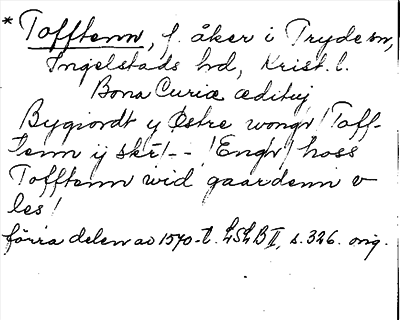 * Tofftenn, f. åker i Tryde sn,
Ingelstads hd, Krist. l.
Bona Curiæ ædituj
Bygiordt y Østre wongr ! Toff-
tenn ij skr! -- ! Enghr! hoss
Tofftenn wid gaardenn v
les!
förra delen av 1570-t. LSLB II, s. 326. orig.